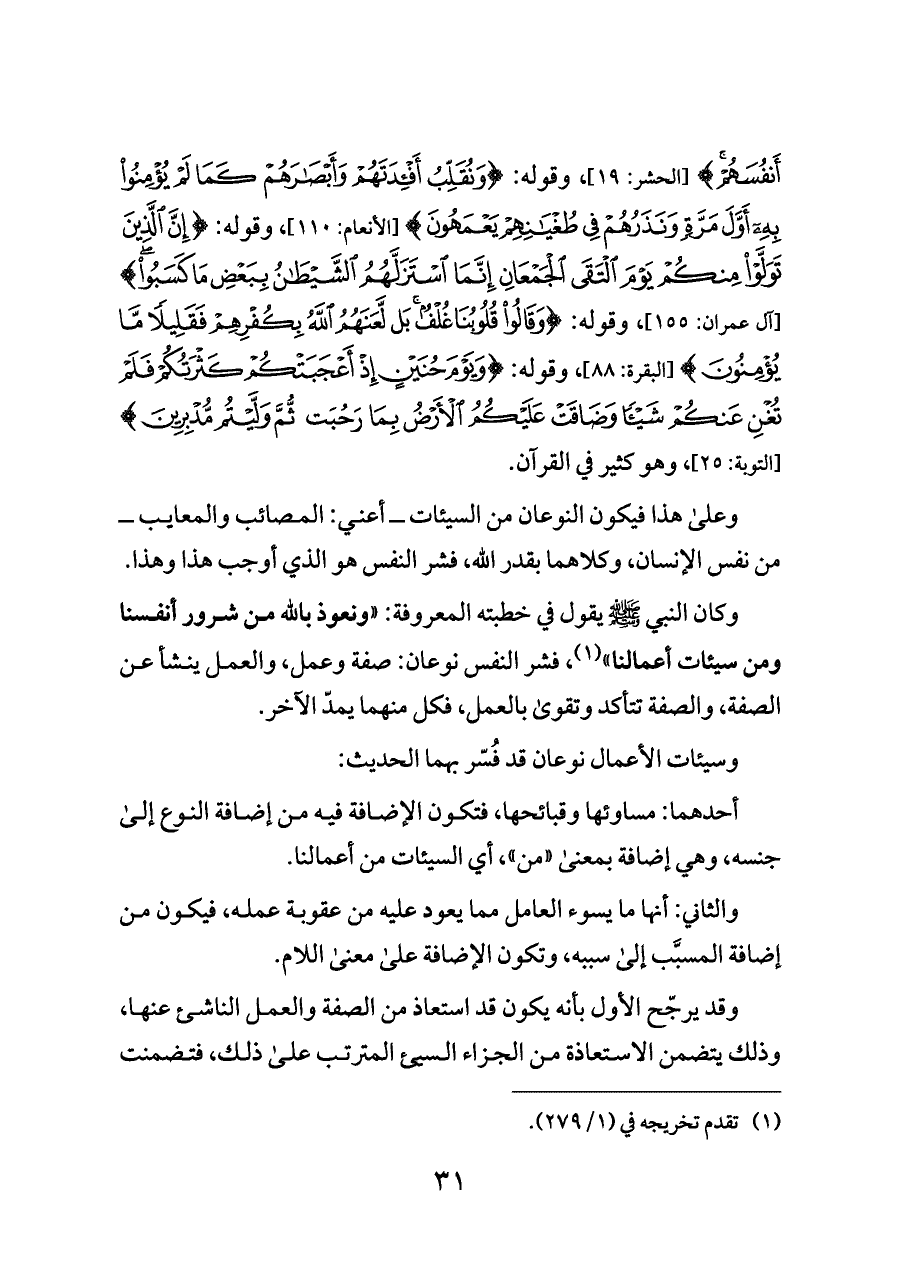 أَنفُسَهُمْ ۚ﴾ [الحشر: ١٩]، وقوله: ﴿وَنُقَلِّبُ أَفْـِٔدَتَهُمْ وَأَبْصَـٰرَهُمْ كَمَا لَمْ يُؤْمِنُوا۟
بِهِۦٓ أَوَّلَ مَرَّةٍ وَنَذَرُهُمْ فِى طُغْيَـٰنِهِمْ يَعْمَهُونَ﴾ [الأنعام: ١١٠]، وقوله: ﴿إِنَّ ٱلَّذِينَ
تَوَلَّوْا۟ مِنكُمْ يَوْمَ ٱلْتَقَى ٱلْجَمْعَانِ إِنَّمَا ٱسْتَزَلَّهُمُ ٱلشَّيْطَـٰنُ بِبَعْضِ مَا كَسَبُوا۟ ۖ﴾
[آل عمران: ١٥٥]، وقوله: ﴿وَقَالُوا۟ قُلُوبُنَا غُلْفٌۢ ۚ بَل لَّعَنَهُمُ ٱللَّهُ بِكُفْرِهِمْ فَقَلِيلًا مَّا
يُؤْمِنُونَ﴾ [البقرة: ٨٨]، وقوله: ﴿وَيَوْمَ حُنَيْنٍ إِذْ أَعْجَبَتْكُمْ كَثْرَتُكُمْ فَلَمْ
تُغْنِ عَنكُمْ شَيْـًٔا وَضَاقَتْ عَلَيْكُمُ ٱلْأَرْضُ بِمَا رَحُبَت ثُمَّ وَلَّيْتُم مُّدْبِرِينَ﴾
[التوبة: ٢٥]، وهو كثير في القرآن.
وعلىٰ هذا فيكون النوعان من السيئات ــ أعني: المصائب والمعايب ــ
من نفس الإنسان، وكلاهما بقدر الله، فشر النفس هو الذي أوجب هذا وهذا.
وكان النبي ﷺ يقول في خطبته المعروفة: «ونعوذ بالله من شرور أنفسنا
ومن سيئات أعمالنا»(١)، فشر النفس نوعان: صفة وعمل، والعمل ينشأ عن
الصفة، والصفة تتأكد وتقوىٰ بالعمل، فكل منهما يمدّ الآخر.
وسيئات الأعمال نوعان قد فُسّر بهما الحديث:
أحدهما: مساوئها وقبائحها، فتكون الإضافة فيه من إضافة النوع إلىٰ
جنسه، وهي إضافة بمعنىٰ «من»، أي السيئات من أعمالنا.
والثاني: أنها ما يسوء العامل مما يعود عليه من عقوبة عمله، فيكون من
إضافة المسبَّب إلىٰ سببه، وتكون الإضافة علىٰ معنىٰ اللام.
وقد يرجّح الأول بأنه يكون قد استعاذ من الصفة والعمل الناشئ عنها،
وذلك يتضمن الاستعاذة من الجزاء السيئ المترتب علىٰ ذلك، فتضمنت
(١) تقدم تخريجه في (١/ ٢٧٩).
٣١